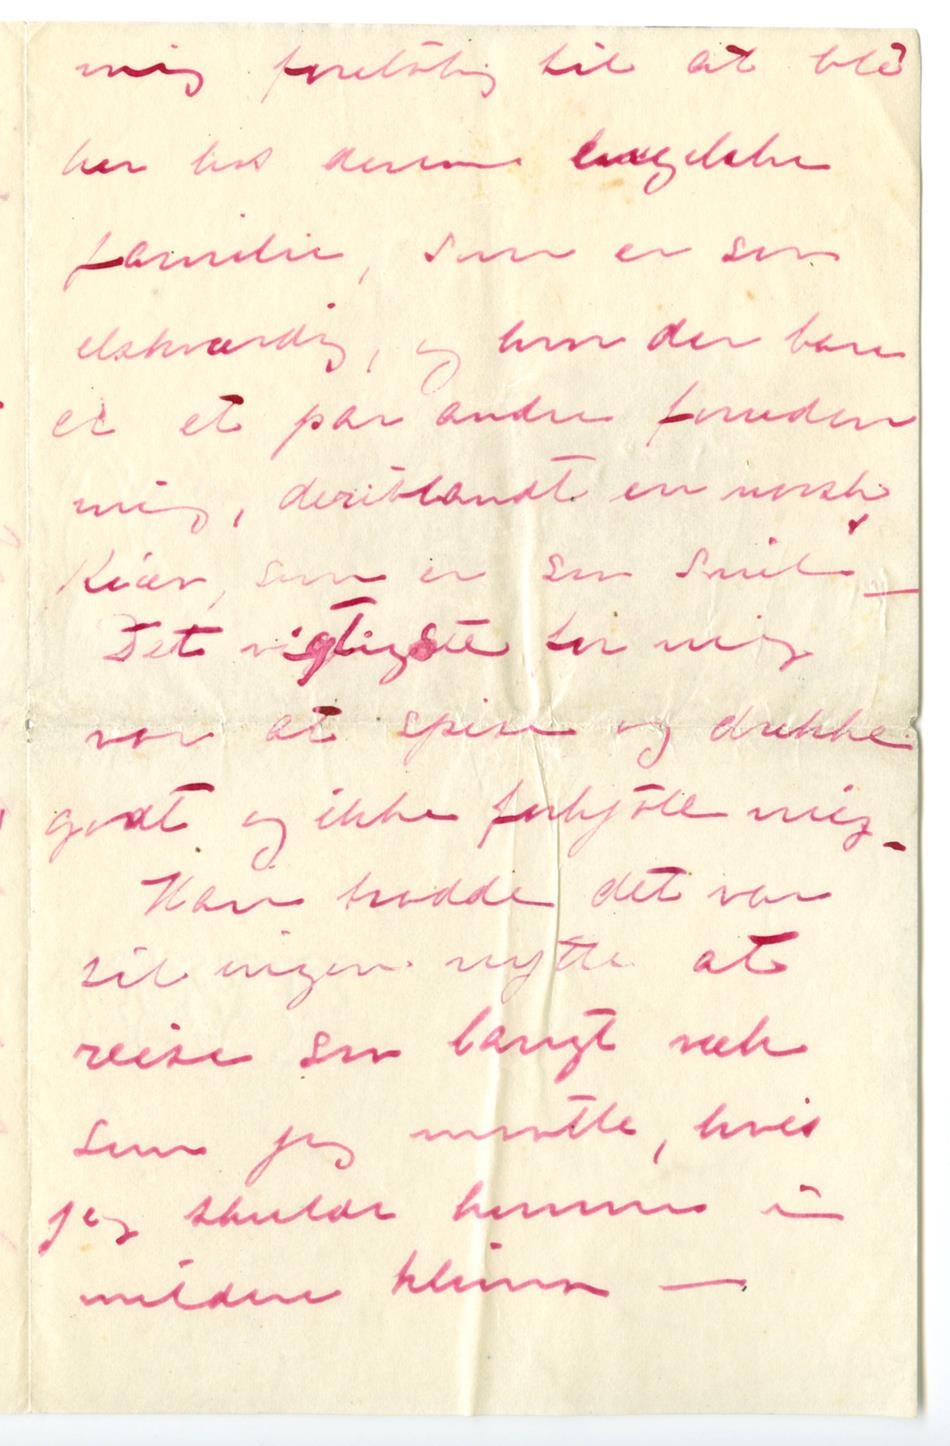 mig foreløbig til at bli
her hos denne engelske
familie, som er saa
elskværdig, og hvor der bare
er et par andre foruden
mig, deriblandt en norsk
Kiær, som er saa snil –
Det vigtigste for mig
var at spise og drikke
godt og ikke forkjøle mig.
Han trodde det var
til ingen nytte at
reise saa langt væk
som jeg maatte, hvis
jeg skulde komme i
mildere klima —